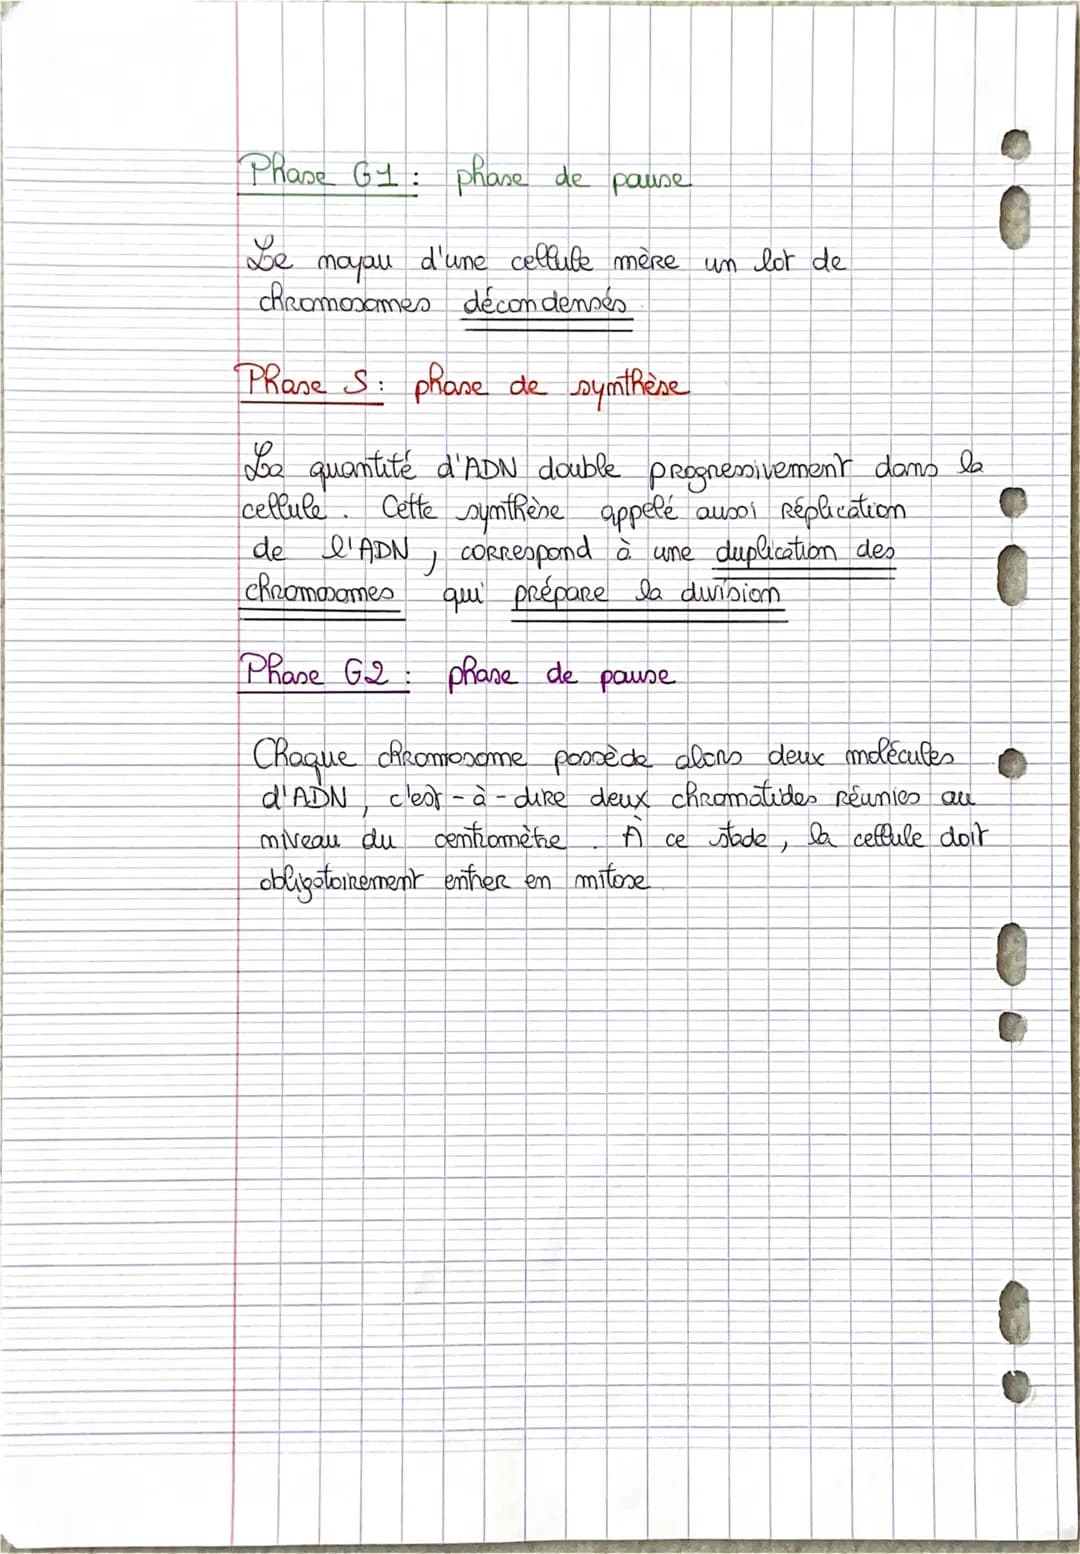 Phase G1 : phase de pause
Le noyau d'une cellule mère un lot de
chromosomes décondensés
Phase S : phase de synthèse
La quantité d'ADN double progressivement dans la
cellule. Cette synthèse appelé aussi réplication
de l'ADN, correspond à une duplication des
chromosomes qui prépare la division
Phase G2 : phase de pause
Chaque chromosome possède alors deux molécules
d'ADN, c'est-à-dire deux chromatides réunies au
niveau du centromètre. À ce stade, la cellule doit
obligatoirement entrer en mitose